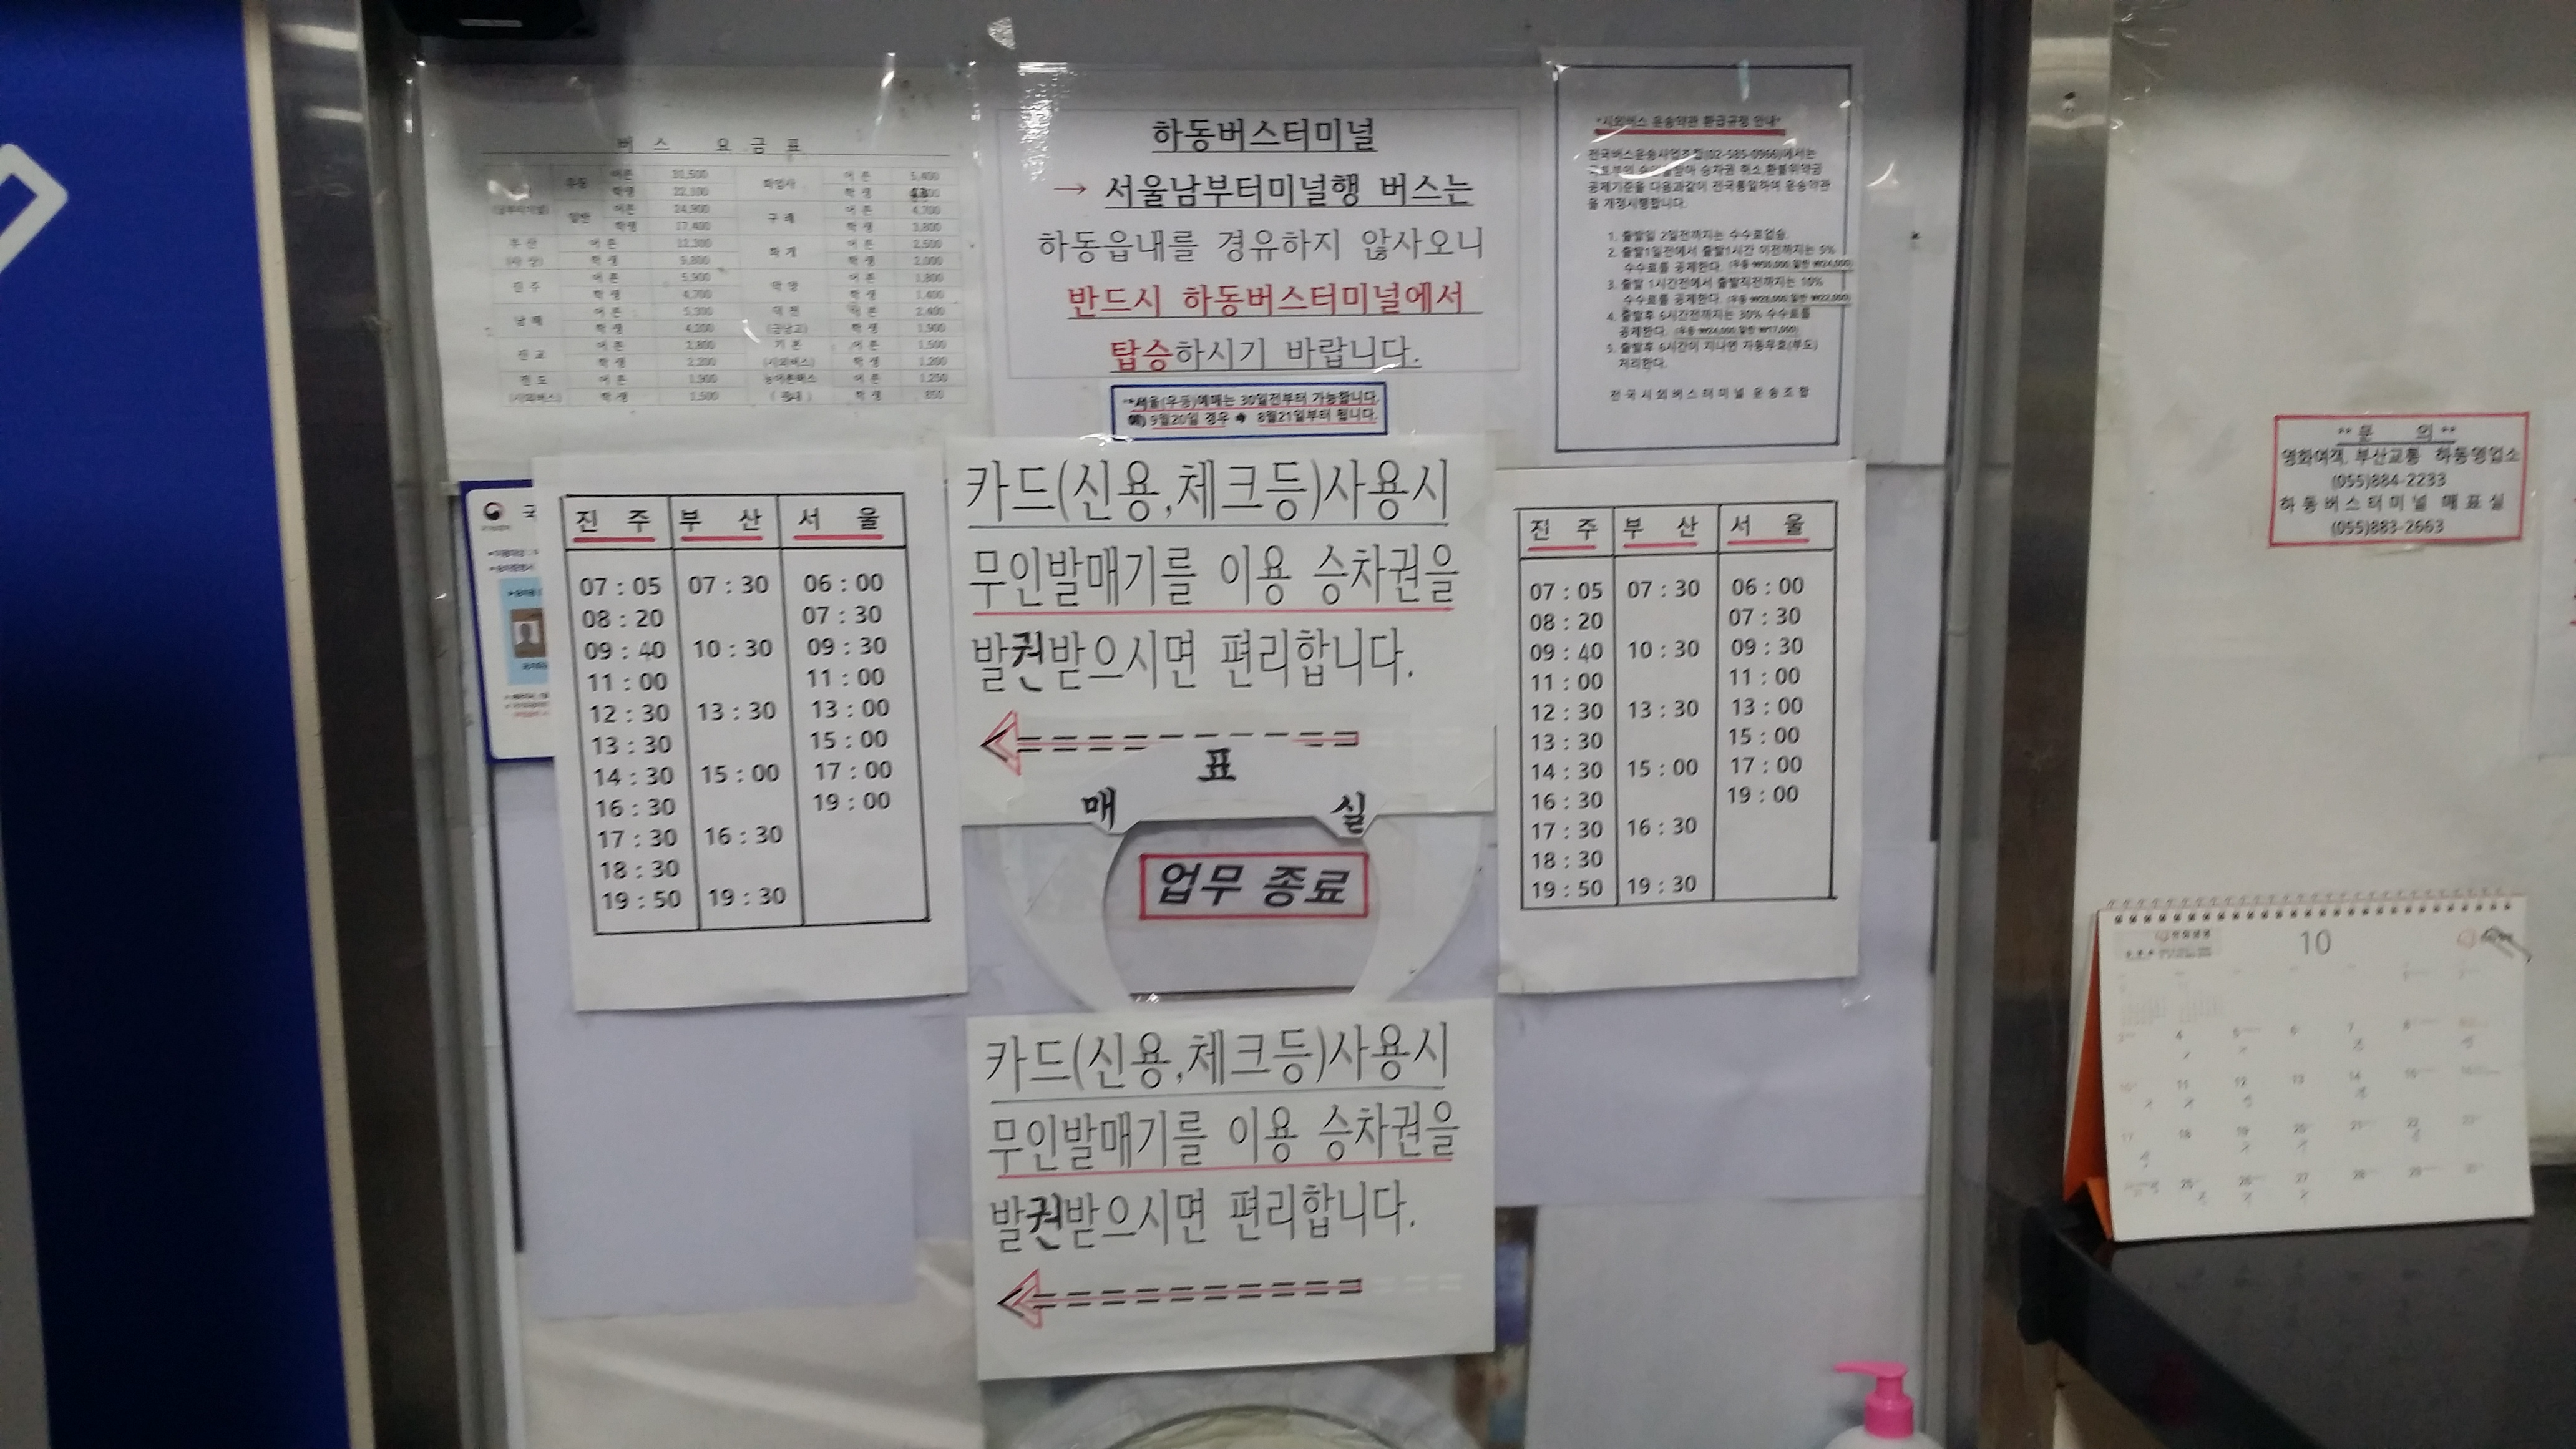 버 스 요 금 표
우등 어른 31,500 화엄사 어 른 5,400
학생 22,100 학 생
일반 어른 24,900 구 례 어 른 4,700
학생 17,400 학 생 3,800
부 산 어 른 12,300 화 개 어 른 2,500
(사 상) 학 생 9,800 학 생 2,000
진 주 어 른 5,900 악 양 어 른 1,800
학 생 4,700 학 생 1,400
남 해 어 른 5,300 어 른 2,400
학 생 4,200 학 생 1,900
진 교 어 른 2,800 기 본 어 른 1,500
학 생 2,200 (시외버스) 학 생 1,200
어 른 1,900 농어촌버스 어 른 1,250
(시외버스) 학 생 1,500 학 생 850
하동버스터미널
→ 서울남부터미널행 버스는
하동읍내를 경유하지 않사오니
반드시 하동버스터미널에서
탑승하시기 바랍니다.
**서울(우등)예매는 30일전부터 가능합니다.
예) 9월20일 경우 → 8월21일부터 됩니다.
*시외버스 운송약관 환급규정 안내*
전국버스운송사업조합(02-585-0966)에서는
승차권 취소,환불위약금
공제기준을 다음과같이 전국통일하여 운송약관
을 개정시행합니다.
1. 출발일 2일전까지는 수수료없슴.
2. 출발1일전에서 출발1시간 이전까지는 5%
수수료를 공제한다.
3. 출발 1시간전에서 출발직전까지는 10%
수수료를 공제한다.
4. 출발후 6시간전까지는 30% 수수료를
공제한다.
5. 출발후 6시간이 지나면 자동무효(부도)
처리한다.
전 국 시 외 버 스 터 미 널 운 송 조 합
** 문 의 **
영화여객, 부산교통 하동영업소
(055)884-2233
하 동 버 스 터 미 널 매 표 실
(055)883-2663
진 주 부 산 서 울
07 : 05 07 : 30 06 : 00
08 : 20 07 : 30
09 : 40 10 : 30 09 : 30
11 : 00 11 : 00
12 : 30 13 : 30 13 : 00
13 : 30 15 : 00
14 : 30 15 : 00 17 : 00
16 : 30 19 : 00
17 : 30 16 : 30
18 : 30
19 : 50 19 : 30
카드(신용,체크등)사용시
무인발매기를 이용 승차권을
발권받으시면 편리합니다.
매 표 실
업무 종료
진 주 부 산 서 울
07 : 05 07 : 30 06 : 00
08 : 20 07 : 30
09 : 40 10 : 30 09 : 30
11 : 00 11 : 00
12 : 30 13 : 30 13 : 00
13 : 30 15 : 00
14 : 30 15 : 00 17 : 00
16 : 30 19 : 00
17 : 30 16 : 30
18 : 30
19 : 50 19 : 30
카드(신용,체크등)사용시
무인발매기를 이용 승차권을
발권받으시면 편리합니다.
10
3 4 5 6 7 8
10 11 12 13 14 15
17 18 19 20 21 22 23
25 26 27 28 29 30